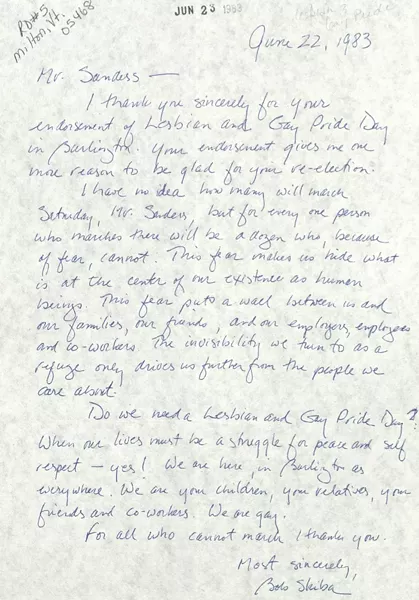 RD#5
Milton, Vt.
05468
JUN 23 1983
June 22, 1983
Mr. Sanders —
I thank you sincerely for your
endorsement of Lesbian and Gay Pride Day
in Burlington. Your endorsement gives me one
more reason to be glad for your re-election.
I have no idea how many will march
Saturday, Mr. Sanders, but for every one person
who marches there will be a dozen who, because
of fear, cannot. This fear makes us hide what
is at the center of our existence as human
beings. This fear puts a wall between us and
our families, our friends, and our employers, employees
and co-workers. The invisibility we turn to as a
refuge only drives us further from the people we
care about.
Do we need a Lesbian and Gay Pride Day?
When our lives must be a struggle for peace and self
respect — yes! We are here in Burlington as
everywhere. We are your children, your relatives, your
friends and co-workers. We are gay.
For all who cannot march I thank you.
Most sincerely,
Bob Skiba